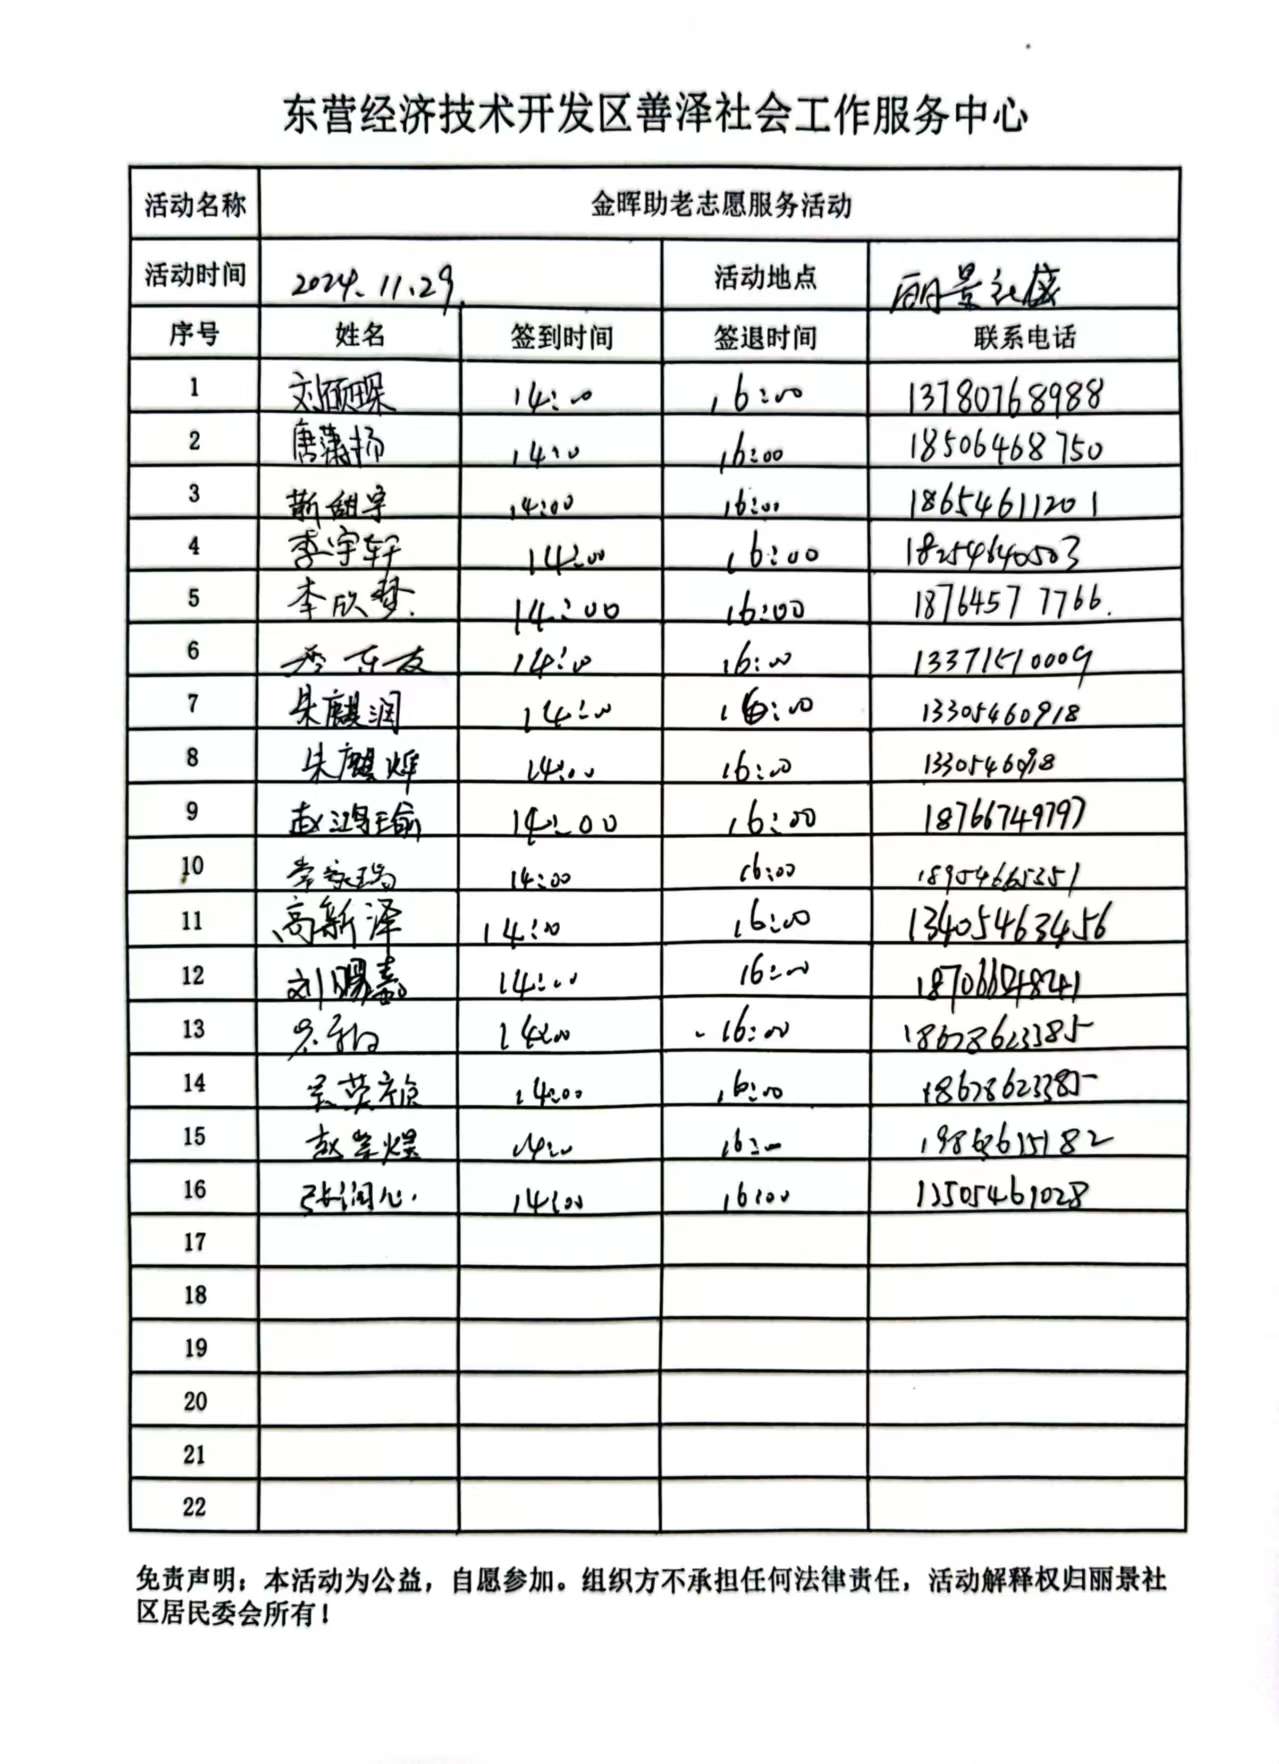 东营经济技术开发区善泽社会工作服务中心
活动名称 金晖助老志愿服务活动
活动时间 2024.11.29. 活动地点 丽景社
序号 姓名 签到时间 签退时间 联系电话
1 刘硕琛 14:00 16:00 13780768988
2 唐 扬 14:00 16:00 18506468750
3 14:00 16:00 18654611201
4 李宇轩 14:00 16:00 18254640503
5 李欣梦 14:00 16:00 18764577766.
6 东友 14:00 16:00 13371510009
7 朱麒润 14:00 16:00 13305460918
8 朱麒烨 14:00 16:00
9 赵鸿瑜 14:00 16:00 18766749797
10 常家瑞 14:00 16:00 18954665351
11 高新泽 14:00 16:00 13405463456
12 刘赐嘉 14:00 16:00
13 14:00 16:00 18678623385
14 吴 14:00 16:00 18678623385
15 赵 煜 14:00 16:00
16 张润心 14:00 16:00 13505461028
17
18
19
20
21
22
免责声明：本活动为公益，自愿参加。组织方不承担任何法律责任，活动解释权归丽景社
区居民委会所有！